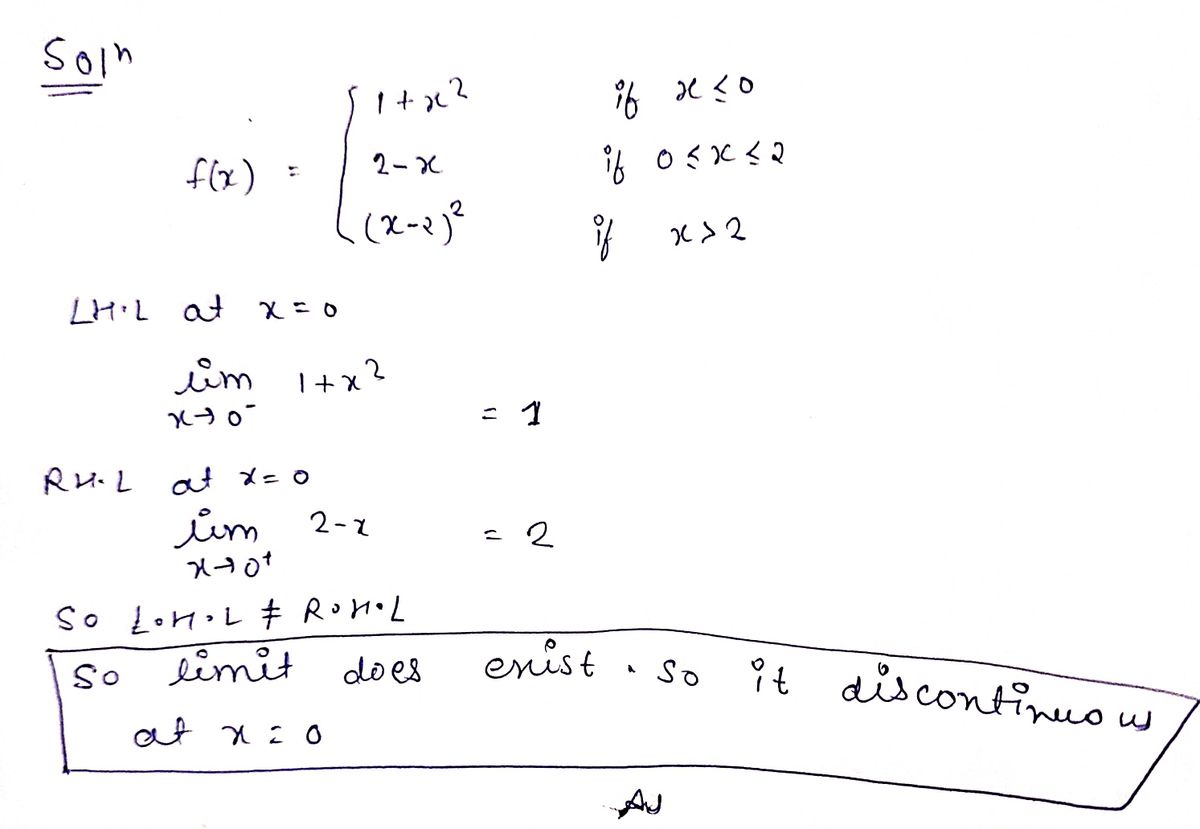 Soln
f(x) = { 1+x² if x ≤ 0
2-x if 0 ≤ x ≤ 2
(x-2)² if x > 2
LH.L at x = 0
lim x→0⁻ 1+x² = 1
RH.L at x = 0
lim x→0⁺ 2-x = 2
So L.H.L ≠ R.H.L
So limit does exist. So it discontinuous
at x = 0